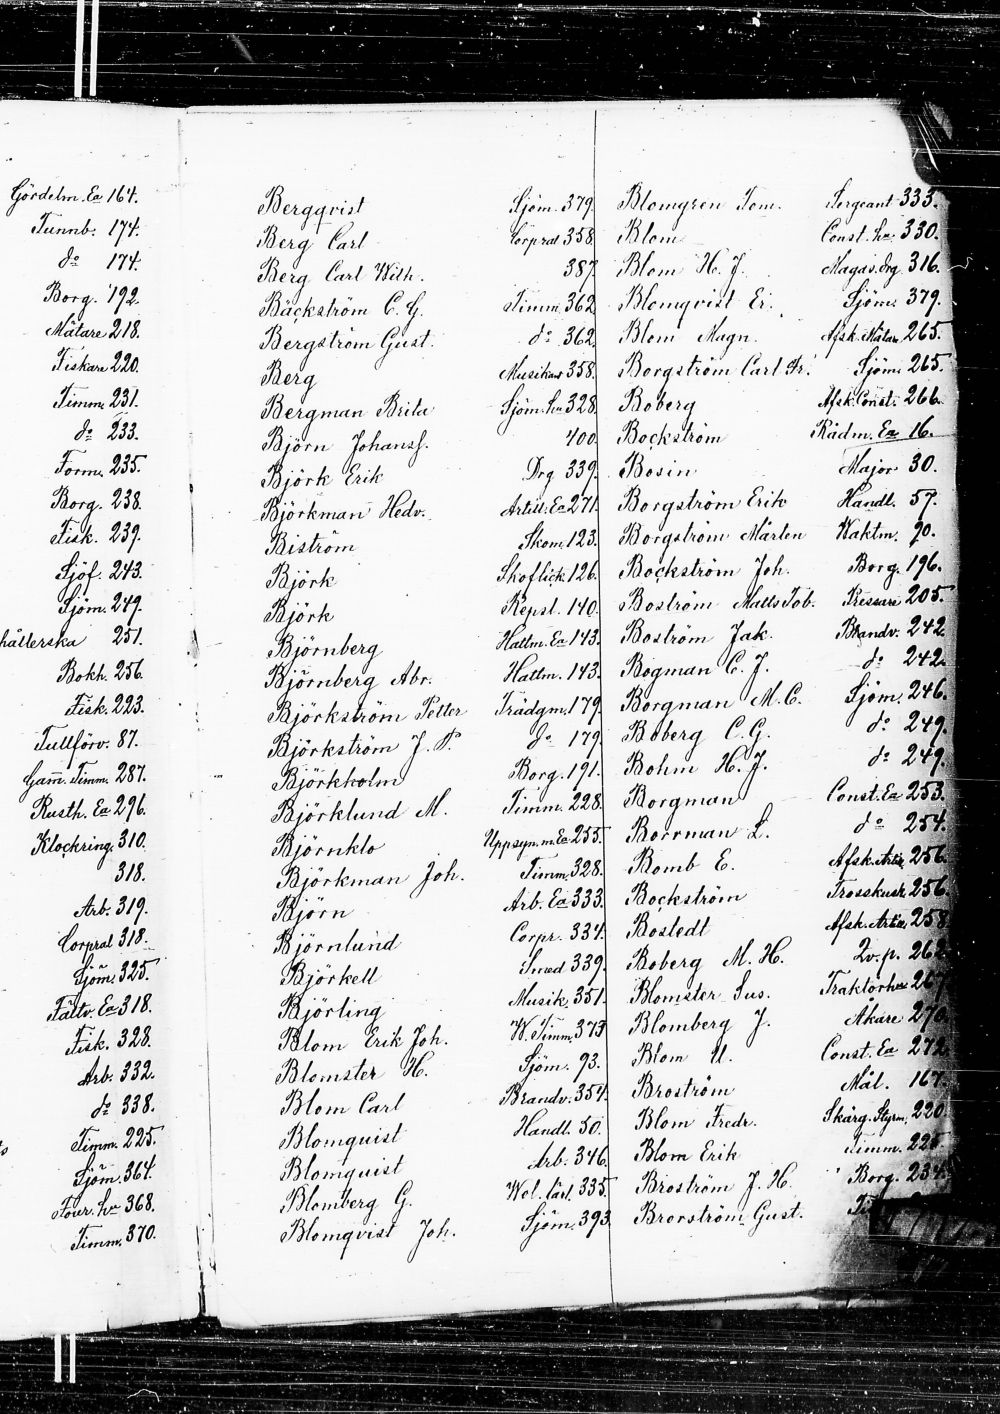 Gördelm. Ea 164.
Tunnb. 174.
do 174.
Borg. 192.
Mätare 218.
Fiskare 220.
Timm. 231.
do 233.
Form. 235.
Borg. 238.
Fisk. 239.
Sjöf. 243.
Sjöm. 249.
hållerska 251.
Bokh. 256.
Fisk. 223.
Tullförv. 87.
Gam. Timm. 287.
Rusth. Ea 296.
Klockring. 310.
318.
Arb. 319.
Corpral 318.
Sjöm. 325.
Fältv. Ea 318.
Fisk. 328.
Arb. 332.
do 338.
Timm. 225.
Sjöm. 364.
Four. hu 368.
Timm. 370.
Bergqvist Sjöm. 379.
Berg Carl Corpral 358.
Berg Carl Wilh. 387.
Bäckström C. G. Timm. 362.
Bergström Gust. do 362.
Berg Musikant 358.
Bergman Brita Sjöm. hu 328.
Björn Johansf. 400.
Björk Erik Drg 339.
Björkman Hedv. Artill. Ea 271.
Biström Skom. 123.
Björk Skoflick. 126.
Björk Repsl. 140.
Björnberg Hattm. Ea 143.
Björnberg Abr. Hattm. 143.
Björkström Petter Trädgm. 179.
Björkström J. P. do 179.
Björkholm Borg. 191.
Björklund M. Timm. 228.
Björnklo Uppsyn. m. Ea 255.
Björkman Joh. Timm. 328.
Björn Arb. Ea 333.
Björnlund Corpr. 334.
Björkell Smed 339.
Björling Musik. 351.
Blom Erik Joh. W. Timm. 373
Blomster H. Sjöm. 93.
Blom Carl Brandv. 354.
Blomquist Handl. 50.
Blomquist Arb. 346.
Blomberg G. Wol. lärl. 335.
Blomqvist Joh. Sjöm. 393.
Blomgren Tom. Sergeant 333.
Blom Const. hu 330.
Blom H. J. Magas. drg 316.
Blomqvist Er. Sjöm. 379.
Blom Magn. Afsk. Mätare 265.
Borgström Carl Fr. Sjöm. 265.
Boberg Afsk. Const. 266.
Bockström Rådm. Ea 16.
Bosin Major 30.
Borgström Erik Handl. 57.
Borgström Mårten Waktm. 90.
Bockström Joh. Borg. 196.
Boström Matts Tob. Pressare 205.
Boström Jak. Brandv. 242.
Bogman C. J. do 242.
Borgman M. C. Sjöm. 246.
Boberg C. G. do 249.
Bohm H. J. do 249.
Borgman Const. Ea 253.
Borrman L. do 254.
Bomb E. Afsk. 256.
Bockström Trosskusk 256.
Bostedt Afsk. 258
Boberg M. H. Qv. p. 262
Blomster Sus. Traktörhu 267
Blomberg J. Åkare 270.
Blom U. Const. Ea 272
Broström Mål. 167.
Blom Fredr. Skärg. Styrm. 220
Blom Erik Timm. 225
Broström J. H. Borg. 234
Brorström Gust.